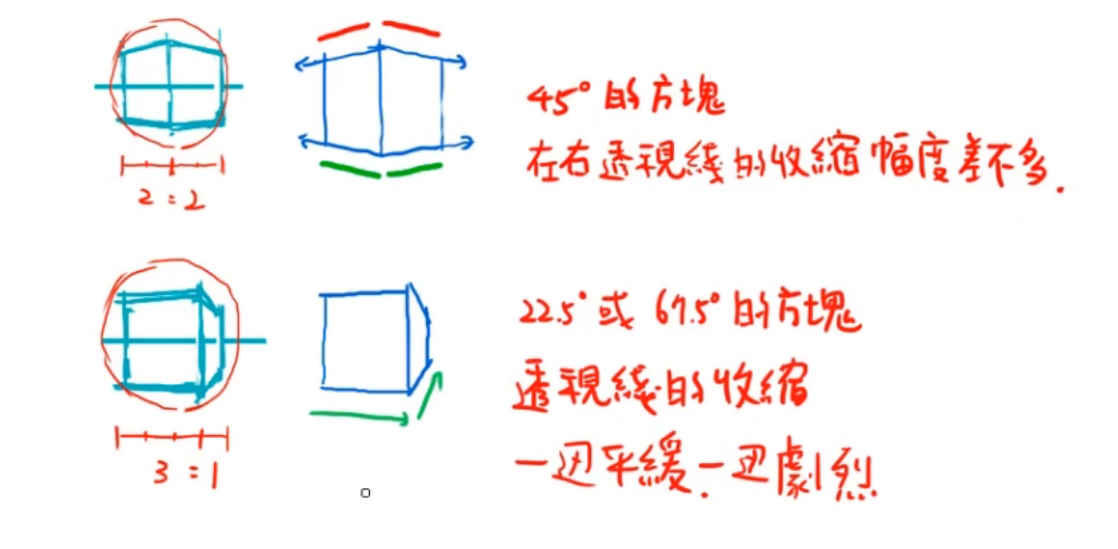 45°的方塊
在右透視綫的收縮幅度差不多.
2:2
22.5°或 67.5°的方塊
透視綫的收縮
一边平緩.一边劇烈.
3:1